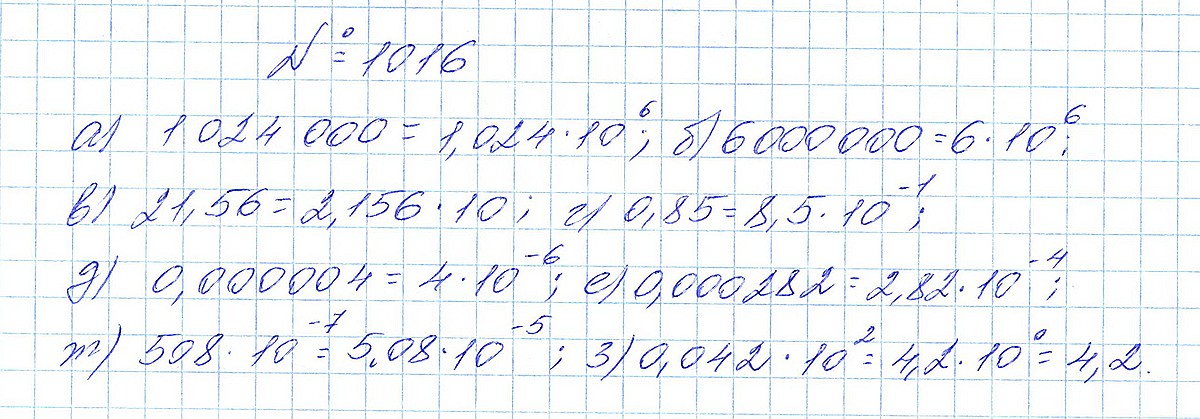 № 1016
а) 1 024 000 = 1,024 · 10⁶; б) 6000000 = 6 · 10⁶;
в) 21,56 = 2,156 · 10; г) 0,85 = 8,5 · 10⁻¹;
д) 0,000004 = 4 · 10⁻⁶; е) 0,000282 = 2,82 · 10⁻⁴;
ж) 508 · 10⁻⁷ = 5,08 · 10⁻⁵; з) 0,042 · 10² = 4,2 · 10⁰ = 4,2.